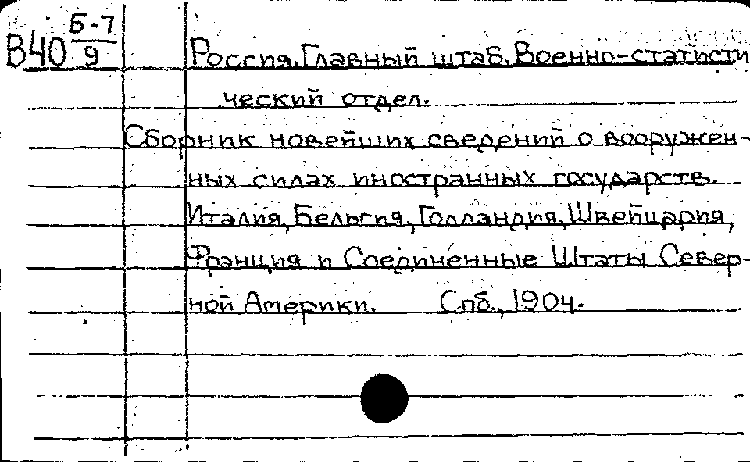 В40 Б-7/9 Россия. Главный штаб. Военно-статисти
ческий отдел.
Сборник новейших сведений о вооружен-
ных силах иностранных государств.
Италия, Бельгия, Голландия, Швейцария,
Франция и Соединенные Штаты Север-
ной Америки. Спб., 1904.